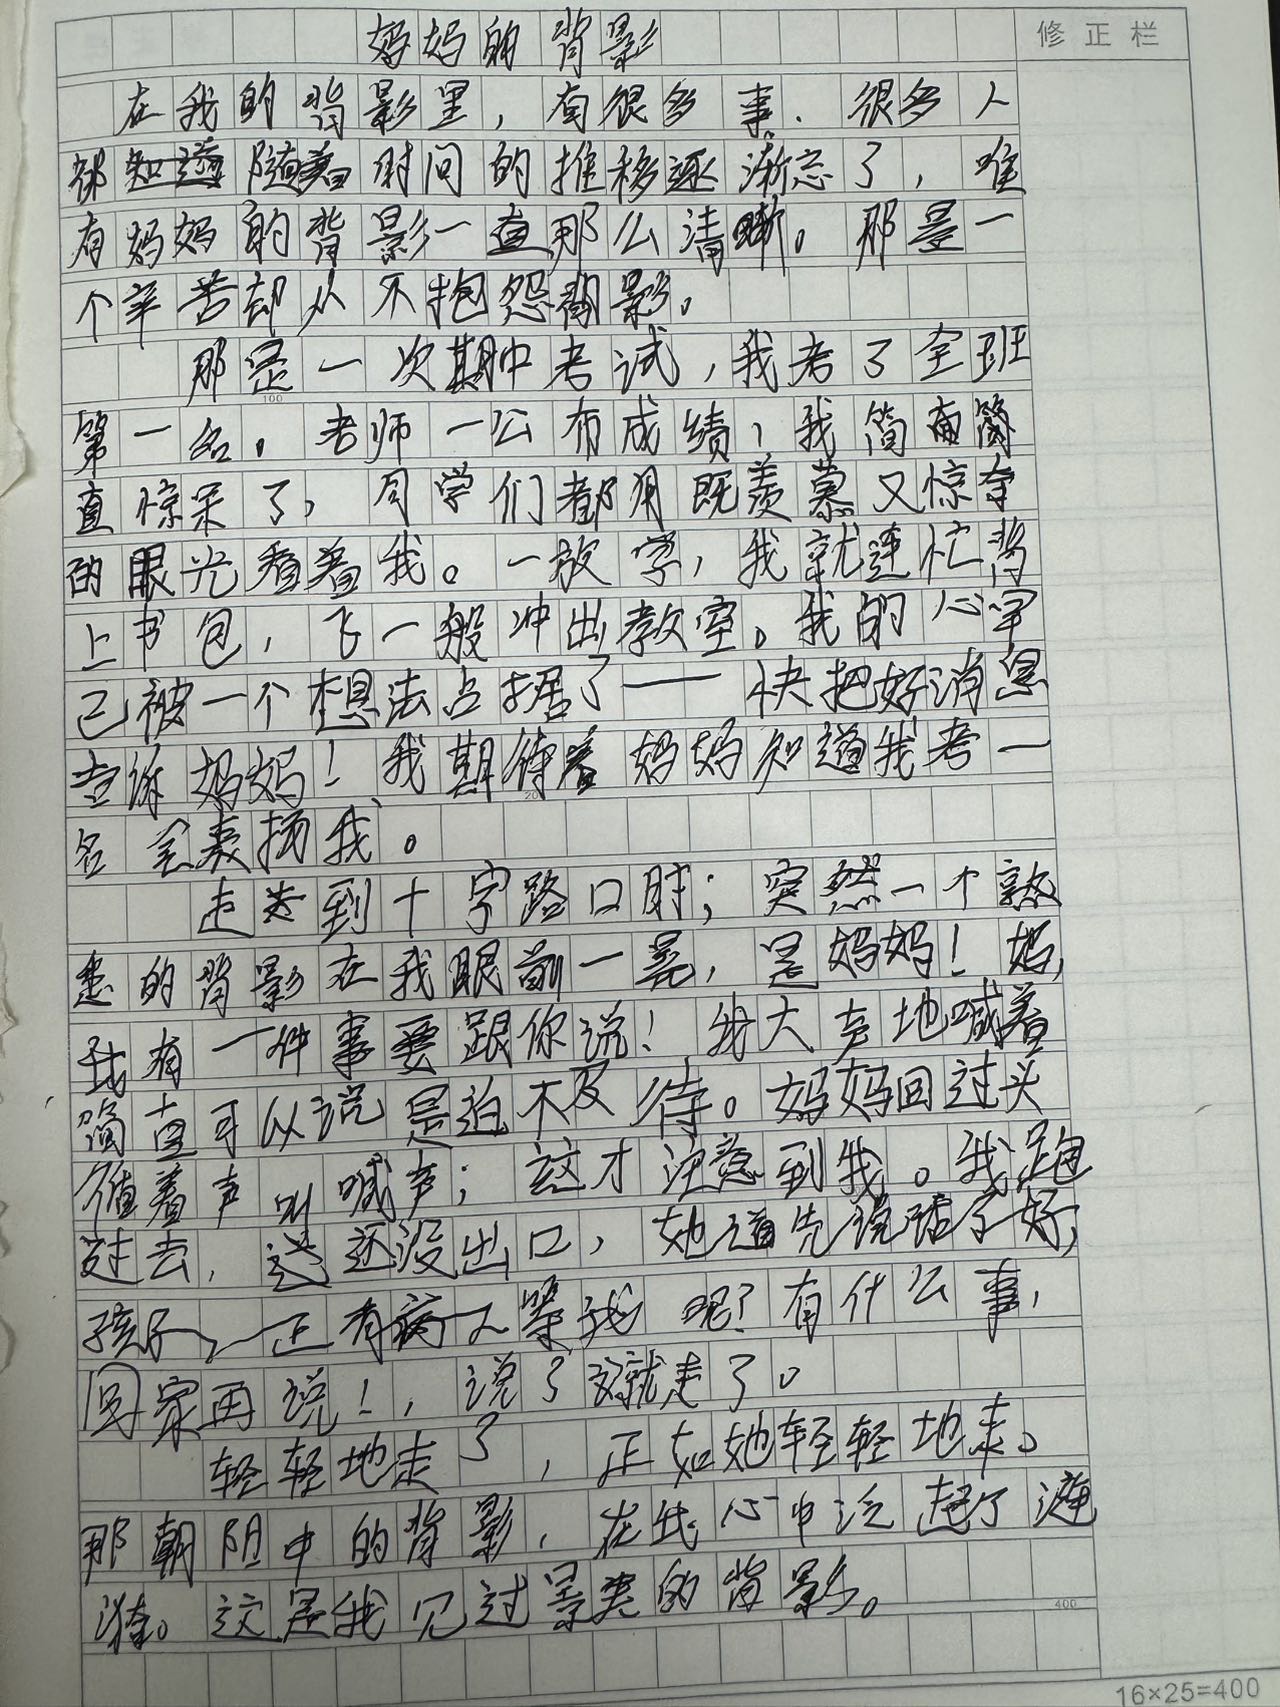 妈妈的背影
修正栏
在我的背影里，有很多事．很多人
都知道随着时间的推移逐渐忘了，唯
有妈妈的背影一直那么清晰。那是一
个辛苦却从不抱怨背影。
那是一次期中考试，我考了全班
第一名。老师一公布成绩，我简直简
直惊呆了，同学们都用既羡慕又惊奇
的眼光看着我。一放学，我就连忙背
上书包，飞一般冲出教室。我的心早
已被一个想法占据了——快把好消息
告诉妈妈！我期待着妈妈知道我考一
名会表扬我。
走走到十字路口时；突然一个熟
悉的背影在我眼前一晃，是妈妈！妈，
我有一件事要跟你说！我大声地喊着
简直可以说是迫不及待。妈妈回过头
循着声叫喊声；这才注意到我。我跑
过去，话还没出口，她道先说话了好，
孩子，正有病人等我呢？有什么事，
回家再说！，说了这就走了。
轻轻地走了，正如她轻轻地来。
那朝阳中的背影，在我心中泛起了涟
漪。这是我见过最美的背影。
100
400
16×25=400